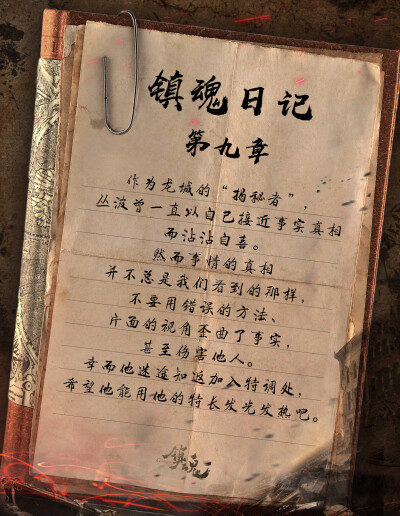 镇魂日记
第九章
作为龙城的“揭秘者”，
丛波曾一直以自己接近事实真相
而沾沾自喜。
然而事情的真相
并不总是我们看到的那样，
不要用错误的方法、
片面的视角歪曲了事实，
甚至伤害他人。
幸而他迷途知返加入特调处，
希望他能用他的特长发光发热吧。
镇魂